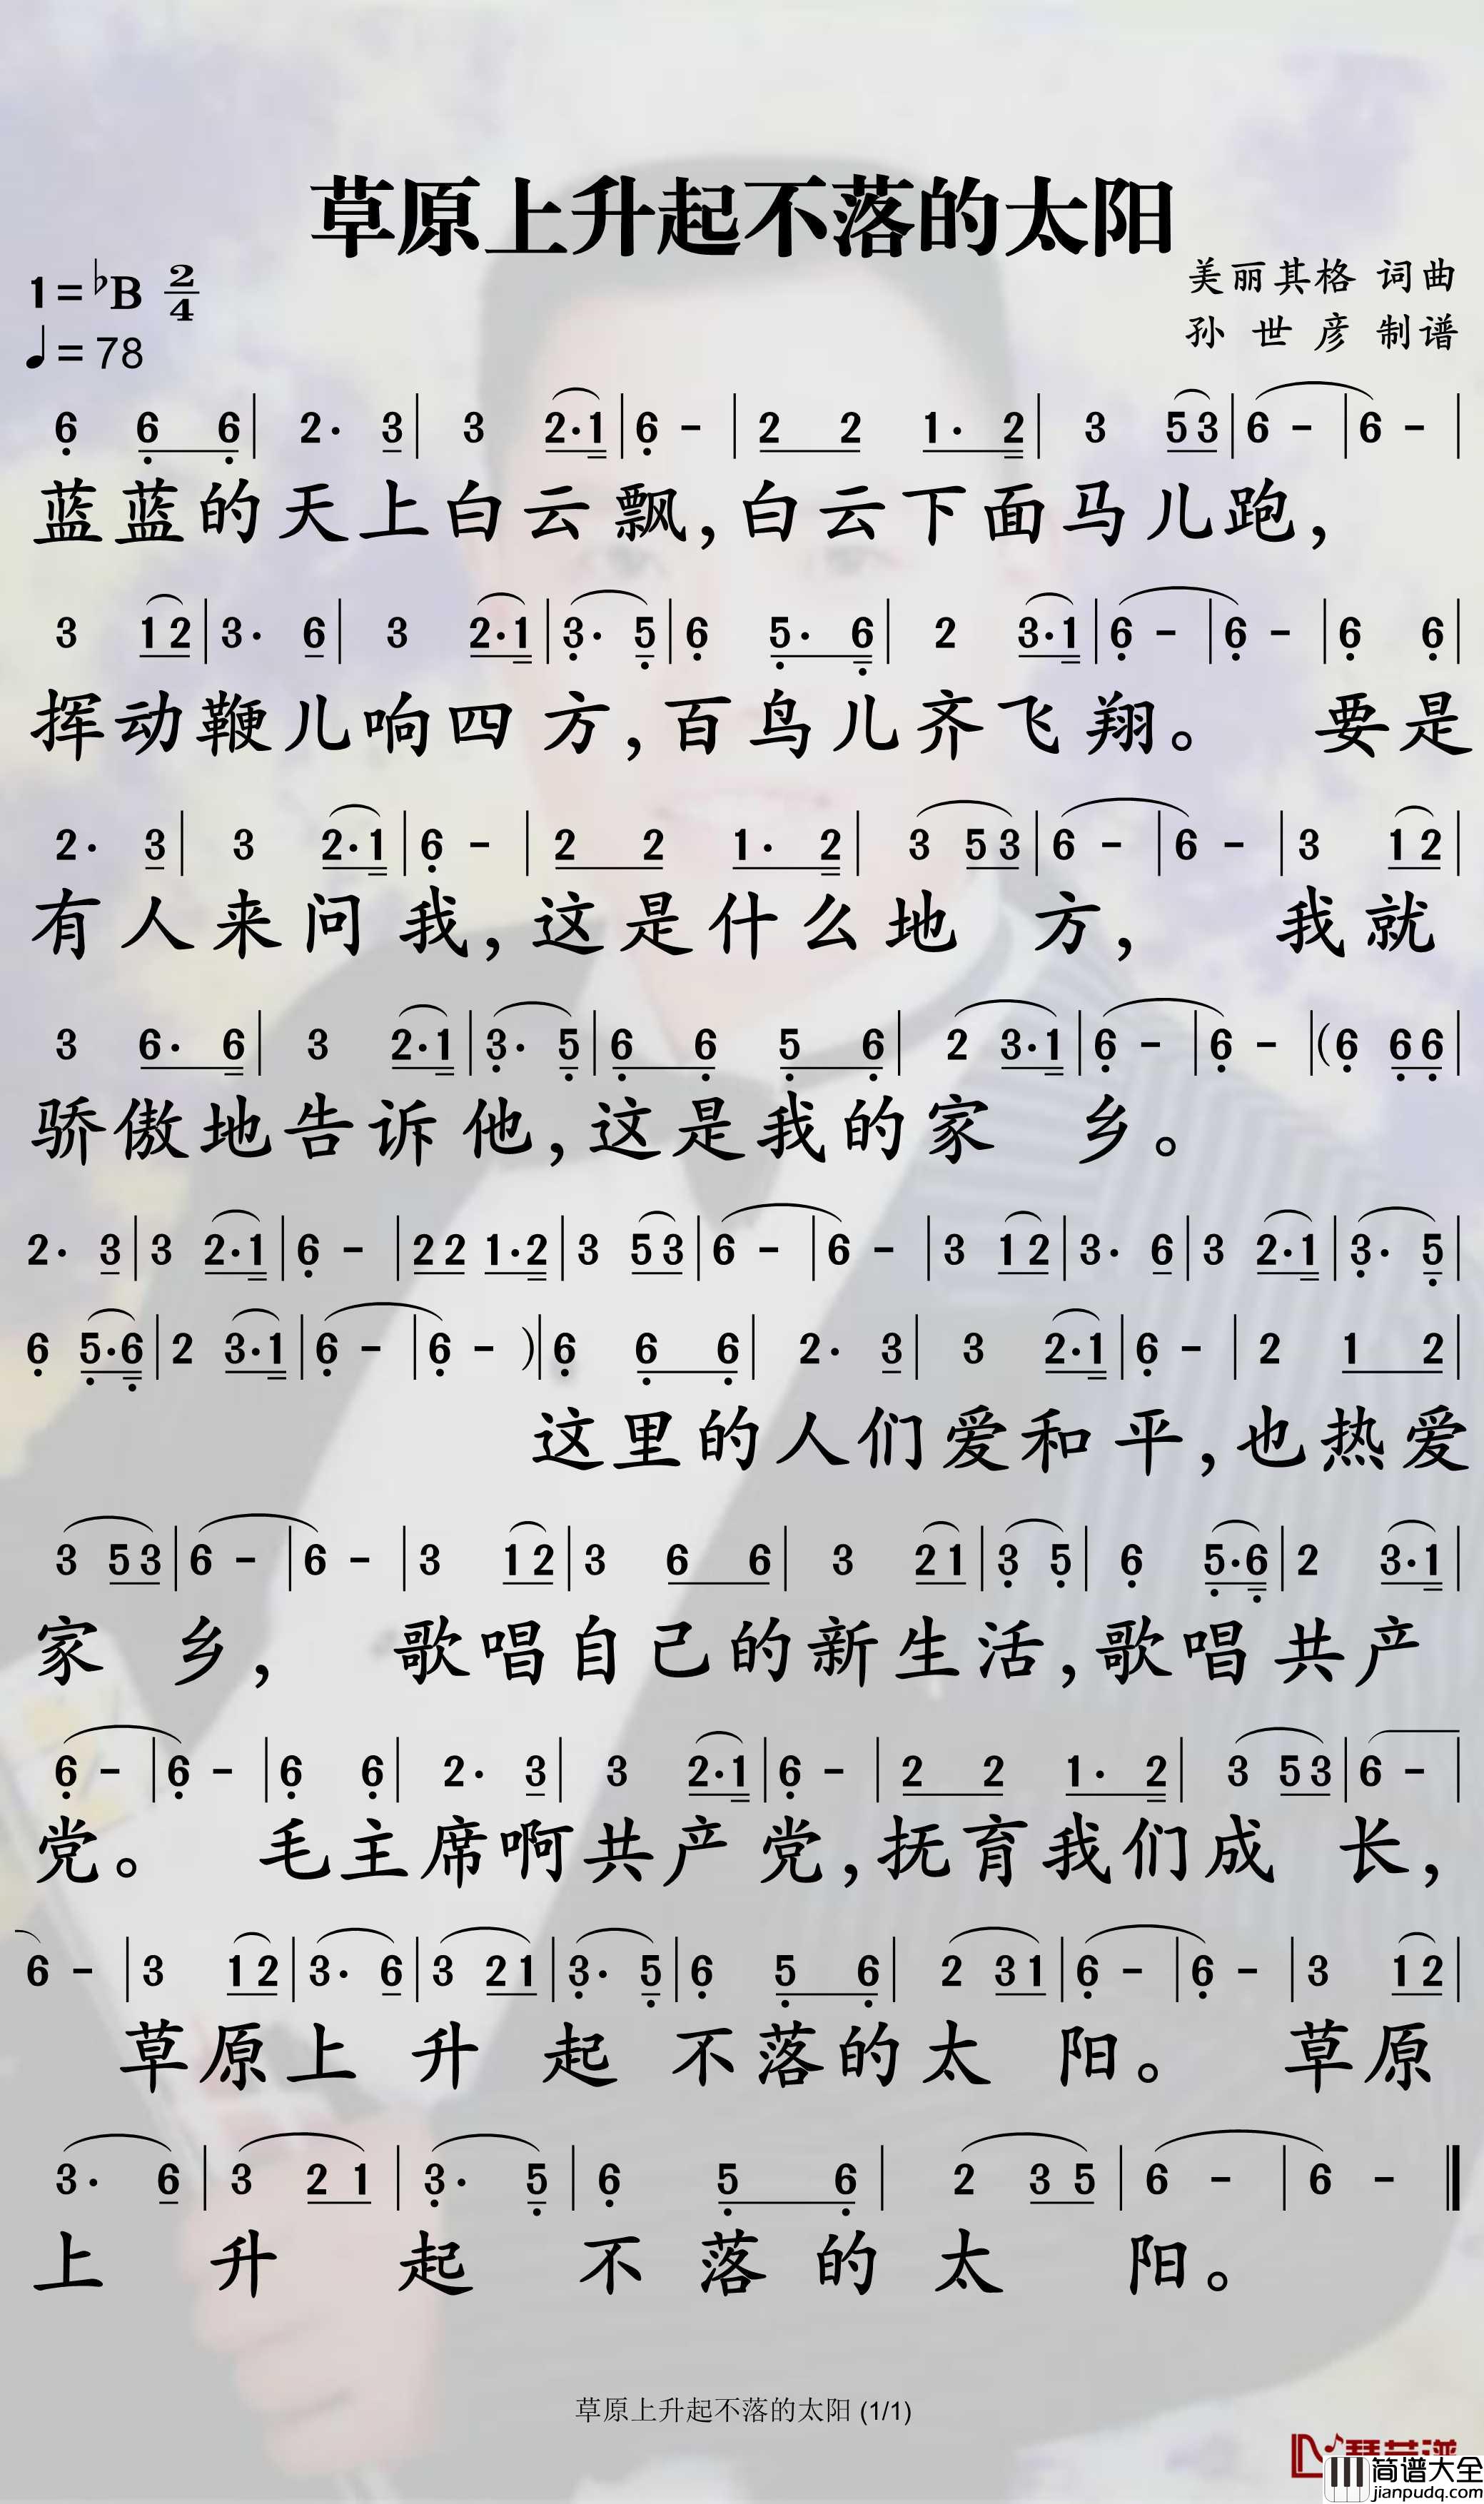 草原上升起不落的太阳
1=♭B 2/4
美丽其格 词曲
♩=78
孙世彦 制谱
6 6 6 | 2· 3 | 3 2·1 | 6 - | 2 2 1· 2 | 3 5 3 | 6 - | 6 - |
蓝蓝的天上白云飘,白云下面马儿跑,
3 1 2 | 3· 6 | 3 2·1 | 3· 5 | 6 5· 6 | 2 3·1 | 6 - | 6 - | 6 6 |
挥动鞭儿响四方,百鸟儿齐飞翔。 要是
2· 3 | 3 2·1 | 6 - | 2 2 1· 2 | 3 5 3 | 6 - | 6 - | 3 1 2 |
有人来问我,这是什么地方, 我就
3 6· 6 | 3 2·1 | 3· 5 | 6 6 5 6 | 2 3·1 | 6 - | 6 - | (6 6 6 |
骄傲地告诉他,这是我的家乡。
2· 3 | 3 2·1 | 6 - | 2 2 1·2 | 3 5 3 | 6 - | 6 - | 3 1 2 | 3· 6 | 3 2·1 | 3· 5 |
6 5·6 | 2 3·1 | 6 - | 6 - )| 6 6 6 | 2· 3 | 3 2·1 | 6 - | 2 1 2 |
这里的人们爱和平,也热爱
3 5 3 | 6 - | 6 - | 3 1 2 | 3 6 6 | 3 2 1 | 3 5 | 6 5·6 | 2 3·1 |
家乡, 歌唱自己的新生活,歌唱共产
6 - | 6 - | 6 6 | 2· 3 | 3 2·1 | 6 - | 2 2 1· 2 | 3 5 3 | 6 - |
党。 毛主席啊共产党,抚育我们成长,
6 - | 3 1 2 | 3· 6 | 3 2 1 | 3· 5 | 6 5 6 | 2 3 1 | 6 - | 6 - | 3 1 2 |
草原上升起不落的太阳。 草原
3· 6 | 3 2 1 | 3· 5 | 6 5 6 | 2 3 5 | 6 - | 6 - ‖
上升起不落的太阳。
草原上升起不落的太阳 (1/1)
简谱大全
jianpudq.com